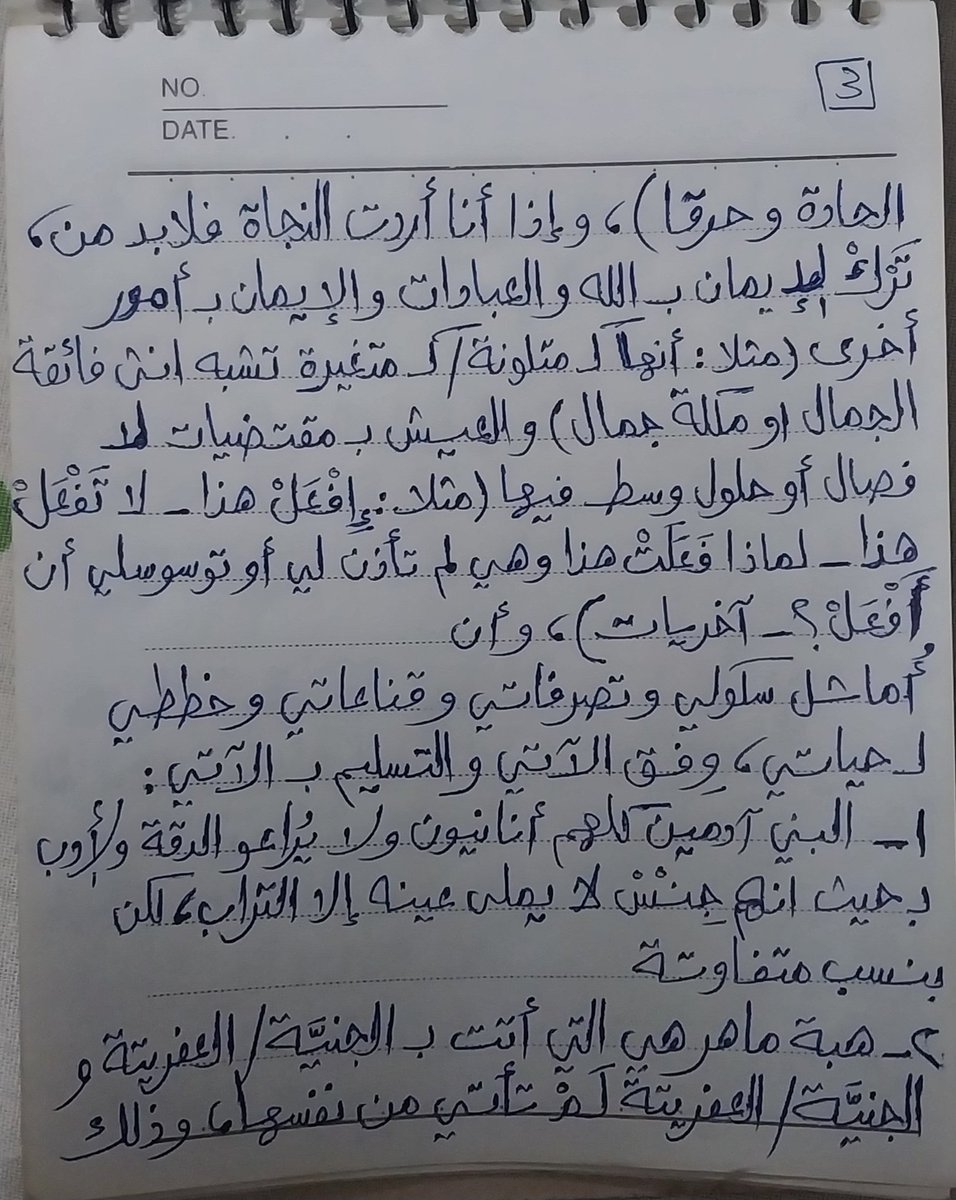 NO.
3
DATE. . .
الحادة وحرقا)، وإذا أنا أردت النجاة فلابد من،
تَرْكْ الإيمان بـ الله والعبادات والإيمان بـ أمور
أخرى (مثلا: أنها لـ متلونة/لـ متغيرة تشبه انثى فائقة
الجمال او مكلة جمال) والعيش بـ مقتضيات لا
فصال أو حلول وسط فيها (مثلا: إِفْعَلْ هذا - لا تَفْعَلْ
هذا - لماذا فَعَلَتْ هذا وهي لم تأذن لي أو توسوسلي أن
أَفْعَلْ؟ - آخريات)، وأن
أُماشل سكولي وتصرفاتي وقناعاتي وخططي
لـ حياتي، وِفق الآتي والتسليم بـ الآتي:
١- البني آدمين كلهم أنانيون ولا يُراعو الدقة ولأدب
بـ حيث انهم جِنْسْ لا يملى عينه إلا التراب، لكن
بنسب متفاوتة
٢- هبة ماهر هي التي أتت بـ الجنيَّة/العفريتة و
الجنيَّة/العفريتة لَمْ تأتي من نفسها، وذلك